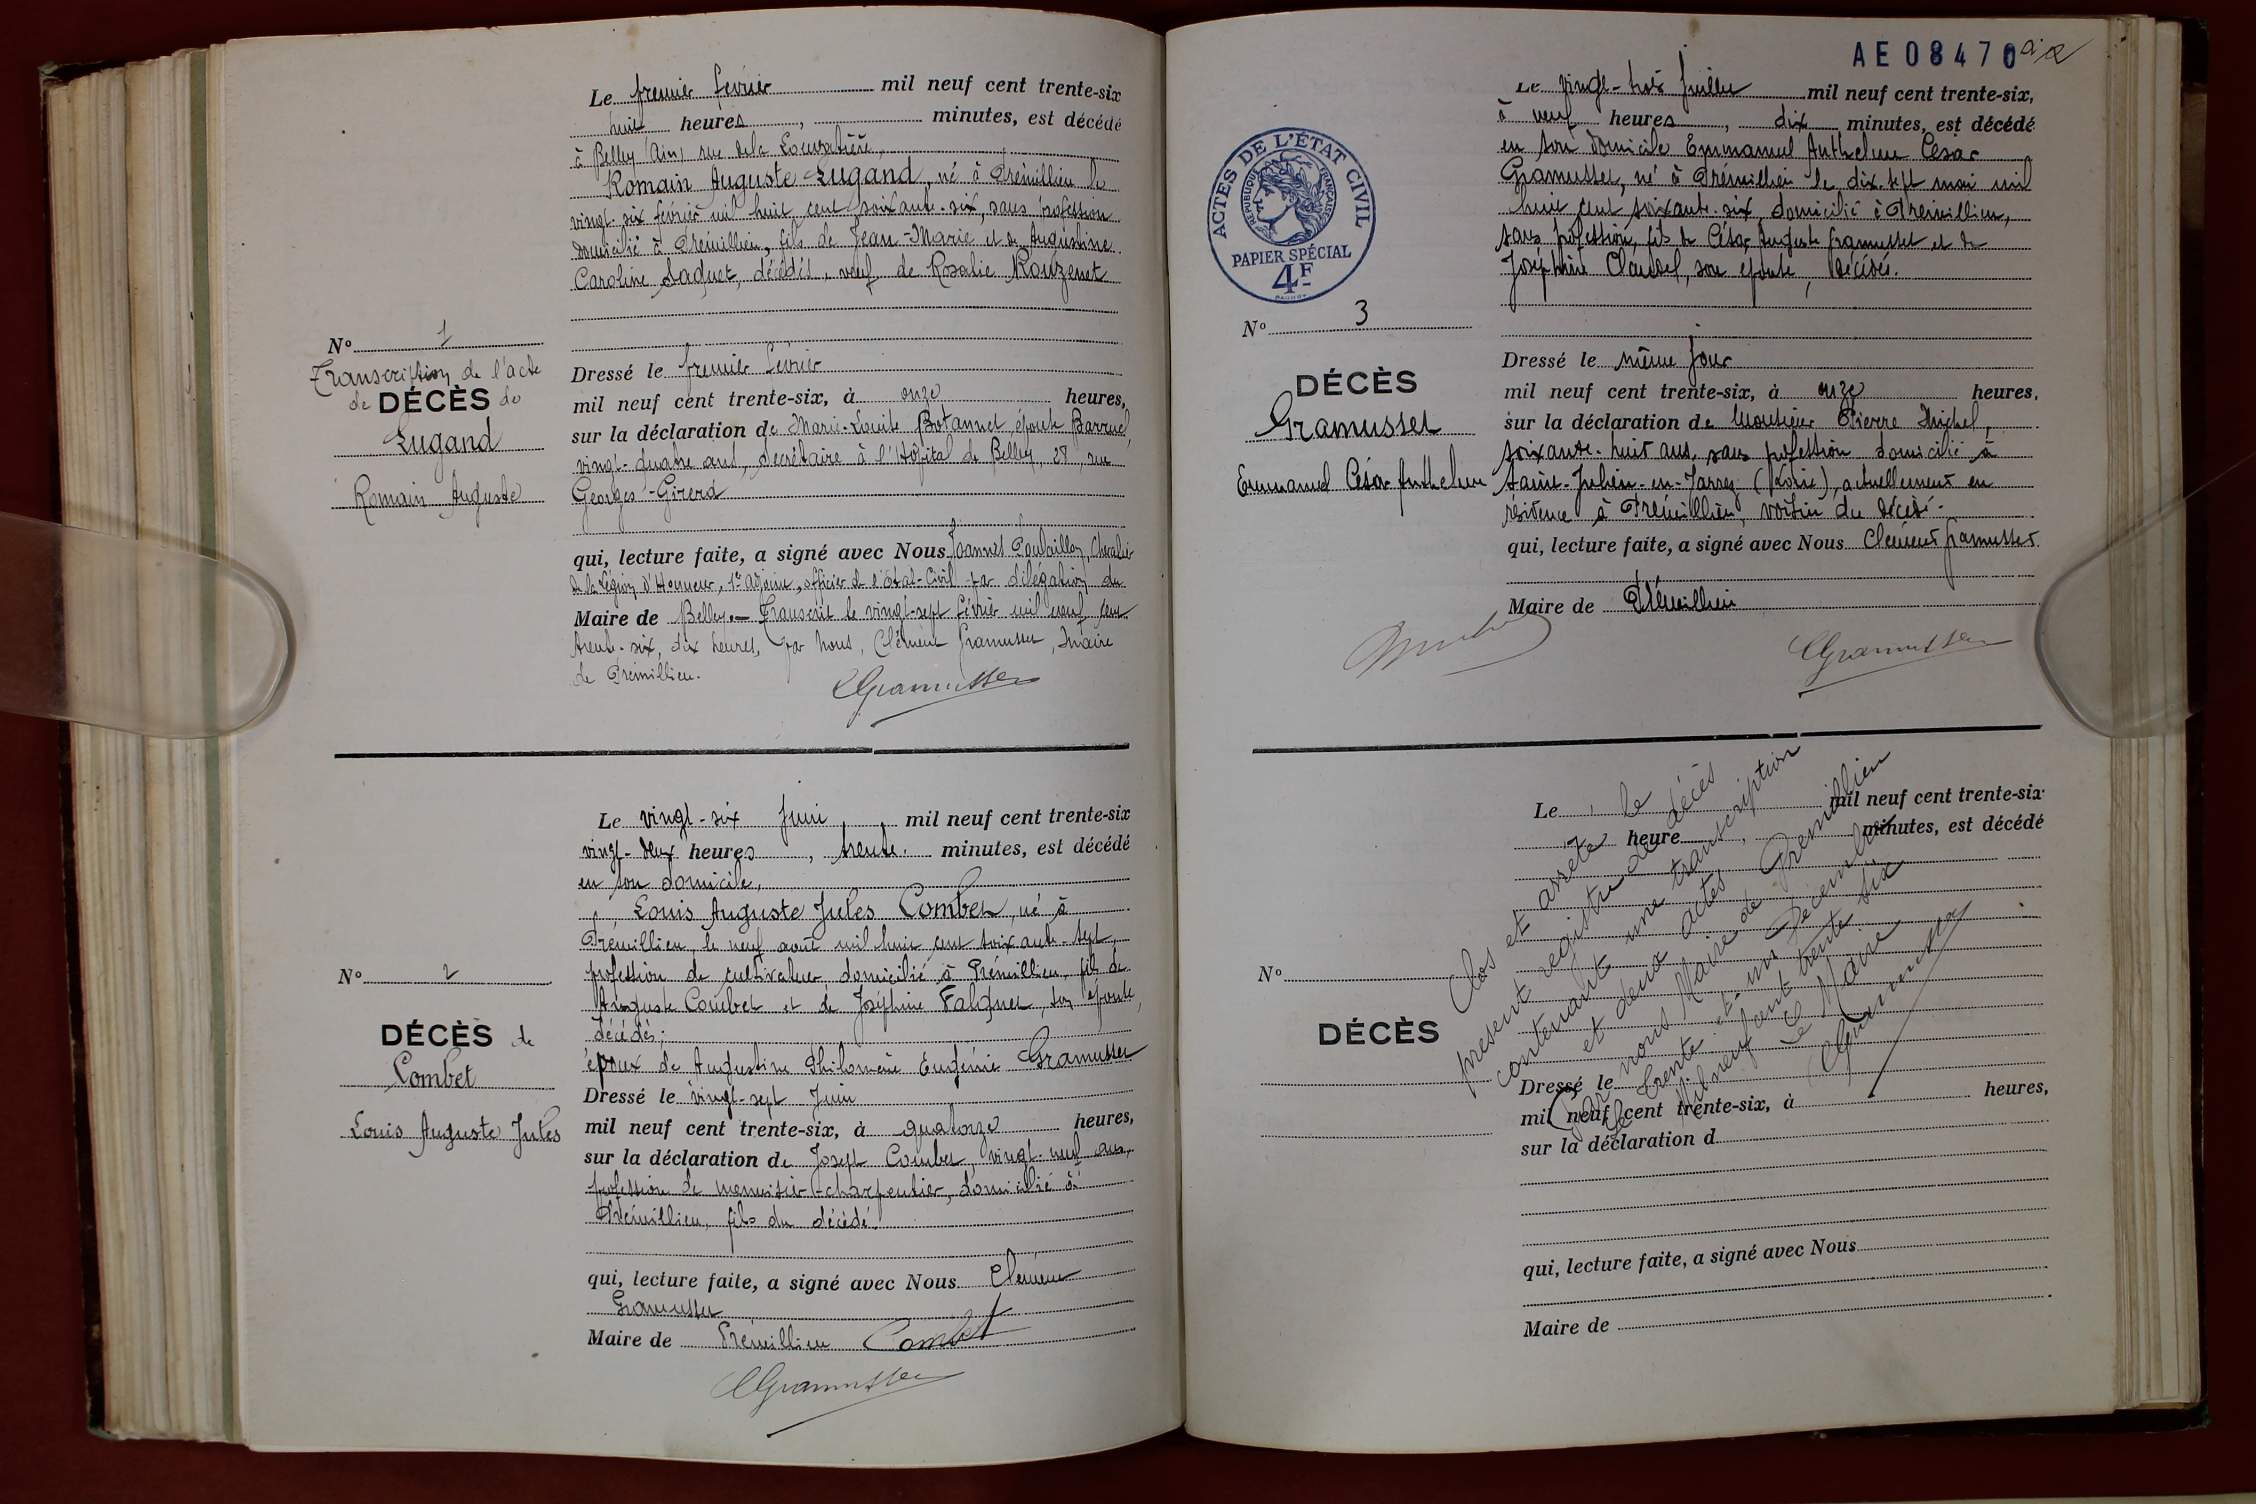 Le premier février mil neuf cent trente-six
huit heures, minutes, est décédé
à Belley (Ain) rue de la
Romain Auguste Lugand, né à Prémillieu le
vingt-six février mil huit cent soixante-six, sans profession
domicilié à Prémillieu, fils de Jean-Marie et de Augustine
Caroline décédés, veuf de Rosalie Rouzenet
N° 1
Transcription de l'acte
de DÉCÈS de
Lugand
Romain Auguste
Dressé le premier février
mil neuf cent trente-six, à onze heures,
sur la déclaration de Marie-Louise épouse
vingt-quatre ans, secrétaire à l'Hôpital de Belley, 28, rue
Georges-Girerd
qui, lecture faite, a signé avec Nous Joannès Chevalier
de la Légion d'Honneur, 1er adjoint, officier de l'état-Civil par délégation du
Maire de Belley.- Transcrit le vingt-sept février mil neuf cent
trente-six, dix heures, par Nous, Clément Gramusset, Maire
de Prémillieu.
CGramusset
Le vingt-six Juin mil neuf cent trente-six
vingt-deux heures, trente minutes, est décédé
en son domicile,
Louis Auguste Jules Combet, né à
Prémillieu le neuf août mil huit cent soixante-sept,
profession de cultivateur, domicilié à Prémillieu, fils de
Auguste Combet et de Joséphine Falquet, son épouse,
décédés;
époux de Augustine Philomène Eugénie Gramusset
N° 2
DÉCÈS de
Combet
Louis Auguste Jules
Dressé le vingt-sept Juin
mil neuf cent trente-six, à quatorze heures,
sur la déclaration de Joseph Combet, vingt-neuf ans,
profession de menuisier-charpentier, domicilié à
Prémillieu, fils du décédé.
qui, lecture faite, a signé avec Nous Clément
Gramusset
Maire de Prémillieu Combet
CGramusset
AE 08470
ACTES DE L'ÉTAT CIVIL
RÉPUBLIQUE FRANÇAISE
PAPIER SPÉCIAL
4F
Le vingt-trois Juillet mil neuf cent trente-six,
à neuf heures, dix minutes, est décédé
en son domicile Emmanuel Anthelme César
Gramusset, né à Prémillieu le dix-sept mai mil
huit cent soixante-six, domicilié à Prémillieu,
sans profession, fils de César Auguste Gramusset et de
Joséphine son épouse, décédés.
N° 3
DÉCÈS
Gramusset
Emmanuel César Anthelme
Dressé le même jour
mil neuf cent trente-six, à onze heures,
sur la déclaration de Pierre Michel,
soixante-huit ans, sans profession domicilié à
Saint-Julien-en-Jarrez (Loire), actuellement en
résidence à Prémillieu, voisin du décédé.
qui, lecture faite, a signé avec Nous Clément Gramusset
Maire de Prémillieu
CGramusset
Le mil neuf cent trente-six
heure minutes, est décédé
N°
DÉCÈS
Clos et arrêté le
présent registre de décès
contenant une transcription
et deux actes,
Par nous Maire de Prémillieu
le trente-et-un Décembre
Mil neuf cent trente six
Le Maire
CGramusset
Dressé le
mil neuf cent trente-six, à heures,
sur la déclaration d
qui, lecture faite, a signé avec Nous
Maire de